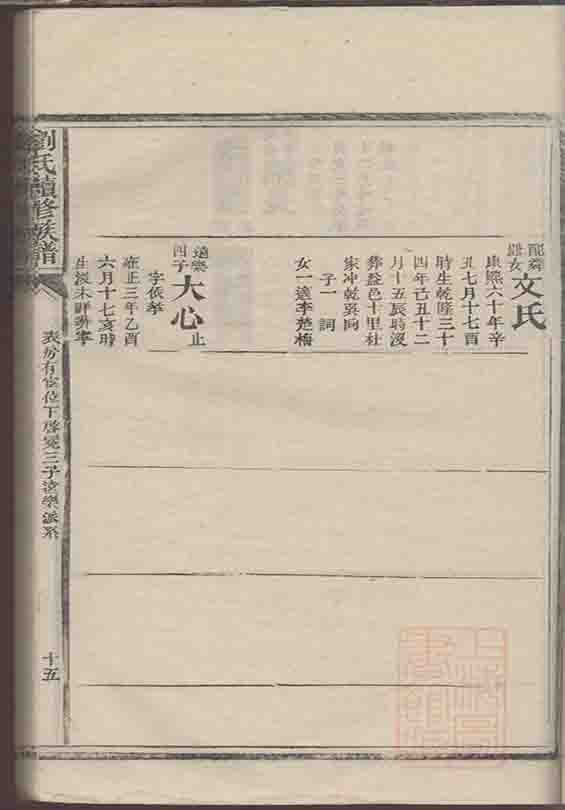 文氏
康熙六十年辛
丑七月十七酉
時生乾隆三十
四年己丑十二
月十五辰時沒
葬益邑十里杜
家冲乾巽向
子一 詞
女一適李楚梅
四子
大心 止
字依
雍正三年乙酉
六月十七亥時
生沒未詳葬寧
劉氏續修族譜
表 有 位下啓 三子 樂派系
十五